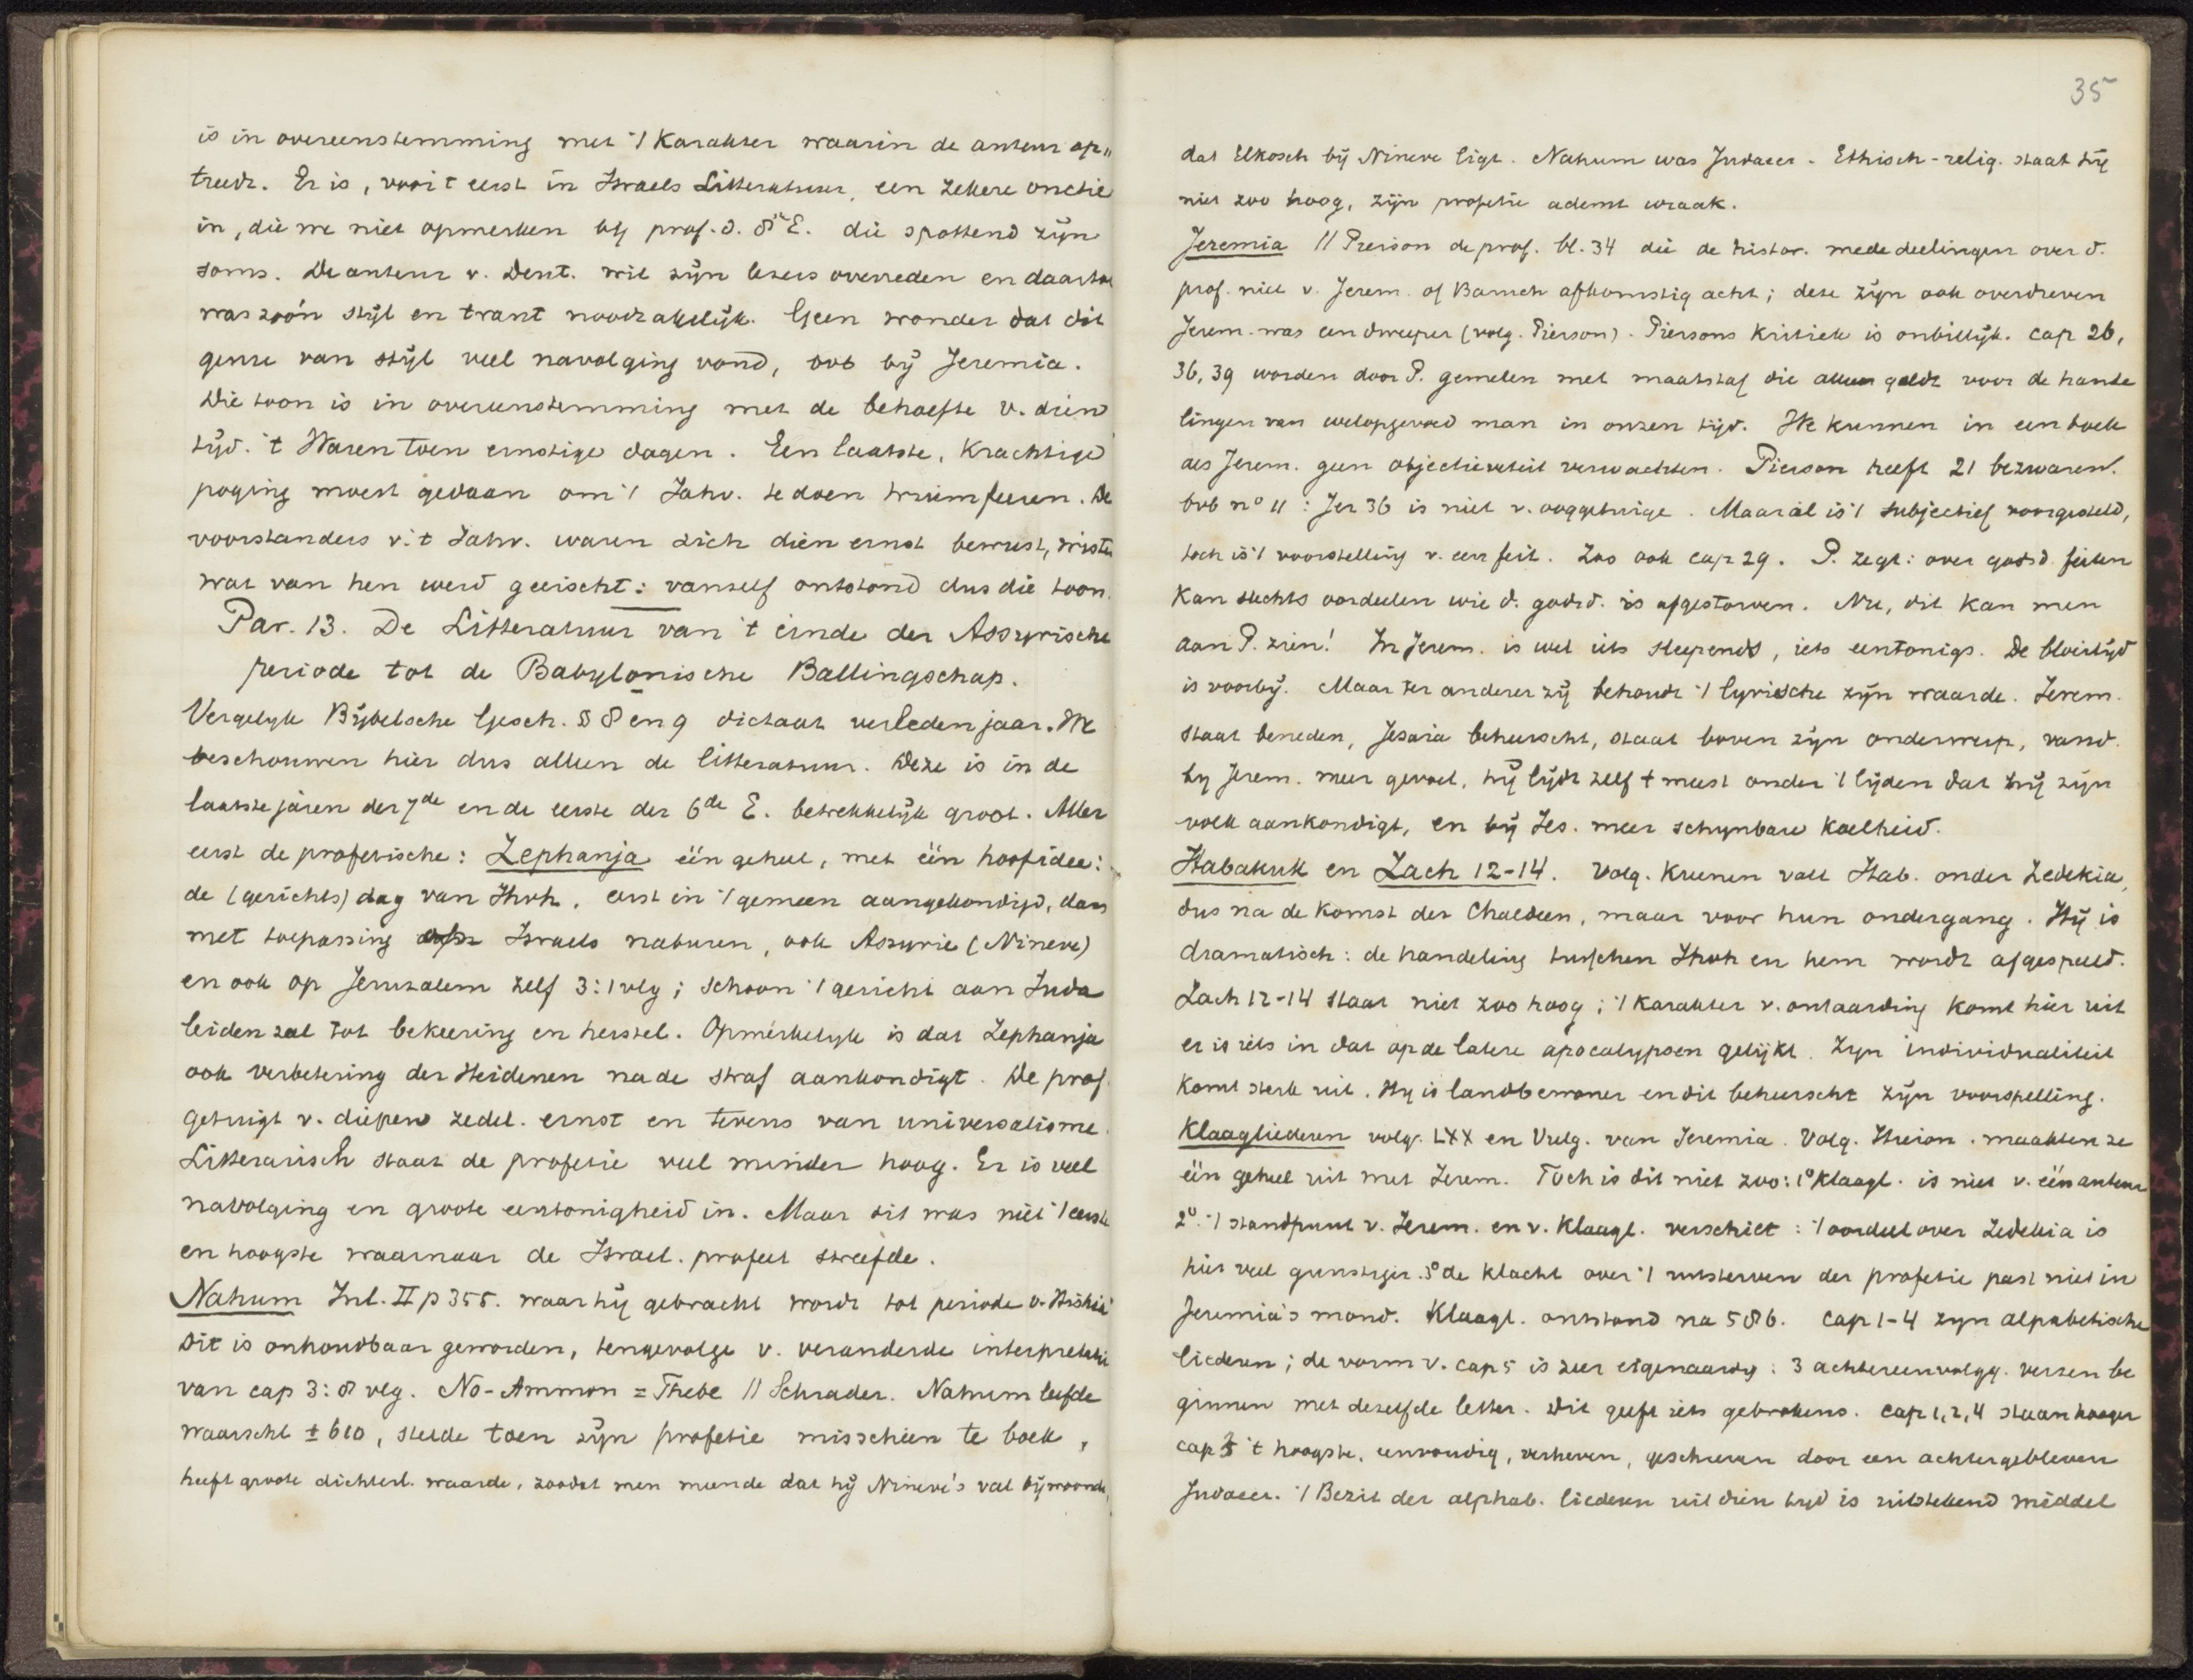 is in overeenstemming met 't Karakter waarin de auteur op„
treedt. Er is, voor 't eerst in Israels Litteratuur, een zekere onctie
in, die we niet opmerken bij prof. d. 8ste E. die spottend zijn
soms. De auteur v. Deut. wil zijn lezers overreden en daartoe
was zoo'n stijl en trant noodzakelijk. Geen wonder dat dit
genre van stijl veel navolging vond, bvb bij Jeremia.
Die toon is in overeenstemming met de behoefte v. dien
tijd. 't Waren toen ernstige dagen. Een laatste, Krachtige
poging moest gedaan om 't Jahv. te doen triumfeeren. De
voorstanders v. 't Jahv. waren zich dien ernst bewust, wisten
wat van hen werd geeischt: vanzelf ontstond dus die toon.
Par. 13. De Litteratuur van 't einde der Assyrische
periode tot de Babylonische Ballingschap.
Vergelijk Bijbelsche Gesch. §§ 8 en 9 dictaat verleden jaar. We
beschouwen hier dus alleen de litteratuur. Deze is in de
laatste jaren der 7de en de eerste der 6de E. betrekkelijk groot. Aller
eerst de profetische: Zephanja één geheel, met één hoofdidee:
de (gerichts)dag van Jhvh, eerst in 't gemeen aangekondigd, dan
met toepassing op Israels naburen, ook Assyrie (Nineve)
en ook op Jeruzalem zelf 3:1 vlg; schoon 't gericht aan Juda
leiden zal tot bekeering en herstel. Opmerkelijk is dat Zephanja
ook verbetering der Heidenen na de straf aankondigt. De prof.
getuigt v. diepen zedel. ernst en tevens van universalisme.
Litterarisch staat de profetie veel minder hoog. Er is veel
navolging en groote eentonigheid in. Maar dit was niet 't eerste
en hoogste waarnaar de Israel. profeet streefde.
Nahum Inl. II p 355. waar hij gebracht wordt tot periode v. Hiskia
Dit is onhoudbaar geworden, tengevolge v. veranderde interpretatie
van cap 3:8 vlg. No-Ammon = Thebe // Schrader. Nahum leefde
waarschl ± 610, stelde toen zijn profetie misschien te boek,
heeft groote dichterl. waarde, zoodat men meende dat hij Nineve's val bijwoonde,
35
dat Elkosch bij Nineve ligt. Nahum was Judaeer. Ethisch-relig. staat hij
niet zoo hoog, zijn profetie ademt wraak.
Jeremia // Pierson de prof. bl. 34 die de histor. mededeelingen over d.
prof. niet v. Jerem. of Baruch afkomstig acht; deze zijn ook overdreven
Jerem. was een dweeper (volg. Pierson). Piersons Kritiek is onbillijk. Cap 26,
36, 39 worden door P. gemeten met maatstaf die alleen geldt voor de hande
lingen van welopgevoed man in onzen tijd. We kunnen in een boek
als Jerem. geen objectieviteit verwachten. Pierson heeft 21 bezwaren.
bvb no 11: Jer 36 is niet v. ooggetuige. Maar al is 't subjectief voorgesteld,
toch is 't voorstelling v. een feit. Zoo ook cap 29. P. zegt: over godsd. feiten
Kan slechts oordeelen wie d. godsd. is afgestorven. Nu, dit kan men
aan P. zien! In Jerem. is wel iets sleepends, iets eentonigs. De bloeitijd
is voorbij. Maar ter anderer zij behoudt 't lyrische zijn waarde. Jerem.
staat beneden, Jesaia beheerscht, staat boven zijn onderwerp, vand.
bij Jerem. meer gevoel, hij lijdt zelf 't meest onder 't lijden dat hij zijn
volk aankondigt, en bij Jes. meer schijnbare Koelheid.
Habakuk en Zach 12-14. Volg. Kuenen valt Hab. onder Zedekia,
dus na de komst der Chaldeen, maar voor hun ondergang. Hij is
dramatisch: de handeling tusschen Jhvh en hem wordt afgespeeld.
Zach 12-14 staat niet zoo hoog; 't Karakter v. ontaarding komt hier uit
er is iets in dat op de latere apocalypsen gelijkt. Zijn individualiteit
komt sterk uit. Hij is landbewoner en dit beheerscht zijn voorspelling.
Klaagliederen volg. LXX en Vulg. van Jeremia. Volg. Hieron. maakten ze
één geheel uit met Jerem. Toch is dit niet zoo: 1o Klaagl. is niet v. één auteur
2o. 't standpunt v. Jerem. en v. Klaagl. verschilt: 't oordeel over Zedekia is
hier veel gunstiger. 3o de klacht over 't uitsterven der profetie past niet in
Jeremia's mond. Klaagl. ontstond na 586. Cap 1-4 zijn alphabetische
liederen; de vorm v. cap 5 is zeer eigenaardig: 3 achtereenvolgg. verzen be
ginnen met dezelfde letter. Dit geeft iets gebrokens. Cap 1, 2, 4 staan hooger
cap 5 't hoogste, eenvoudig, verheven, geschreven door een achtergebleven
Judaeer. 't Bezit der alphab. liederen uit dien tijd is uitstekend middel